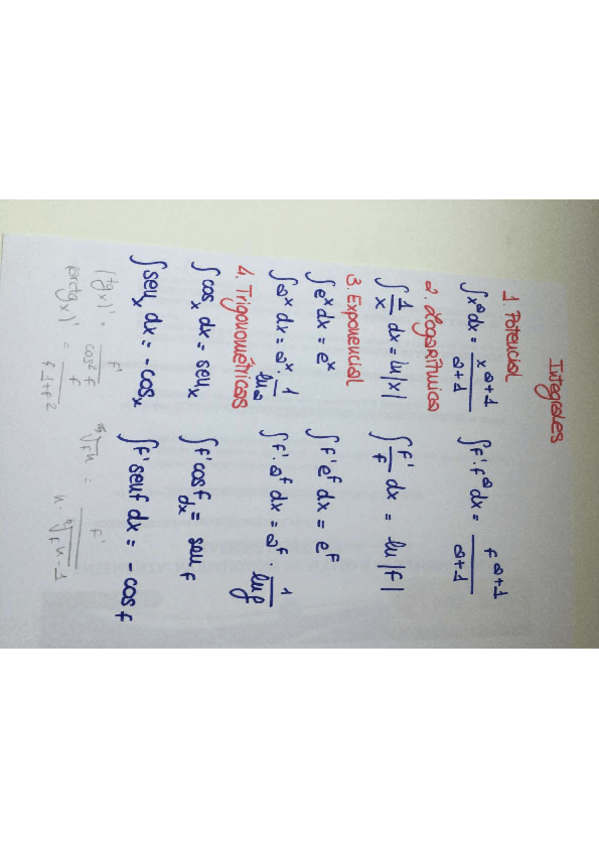 Integrales
1. Potencial
∫x^a dx = x^(a+1)/(a+1)    ∫f'·f^a dx = f^(a+1)/(a+1)
2. Logarítmica
∫1/x dx = ln|x|    ∫f'/f dx = ln|f|
3. Exponencial
∫e^x dx = e^x    ∫f'e^f dx = e^f
∫a^x dx = a^x · 1/ln a    ∫f'·a^f dx = a^f 1/ln f
4. Trigonométricas
∫cos x dx = sen x    ∫f' cos f dx = sen f
∫sen x dx = -cos x    ∫f' sen f dx = -cos f
(tg x)' = f'/cos² f